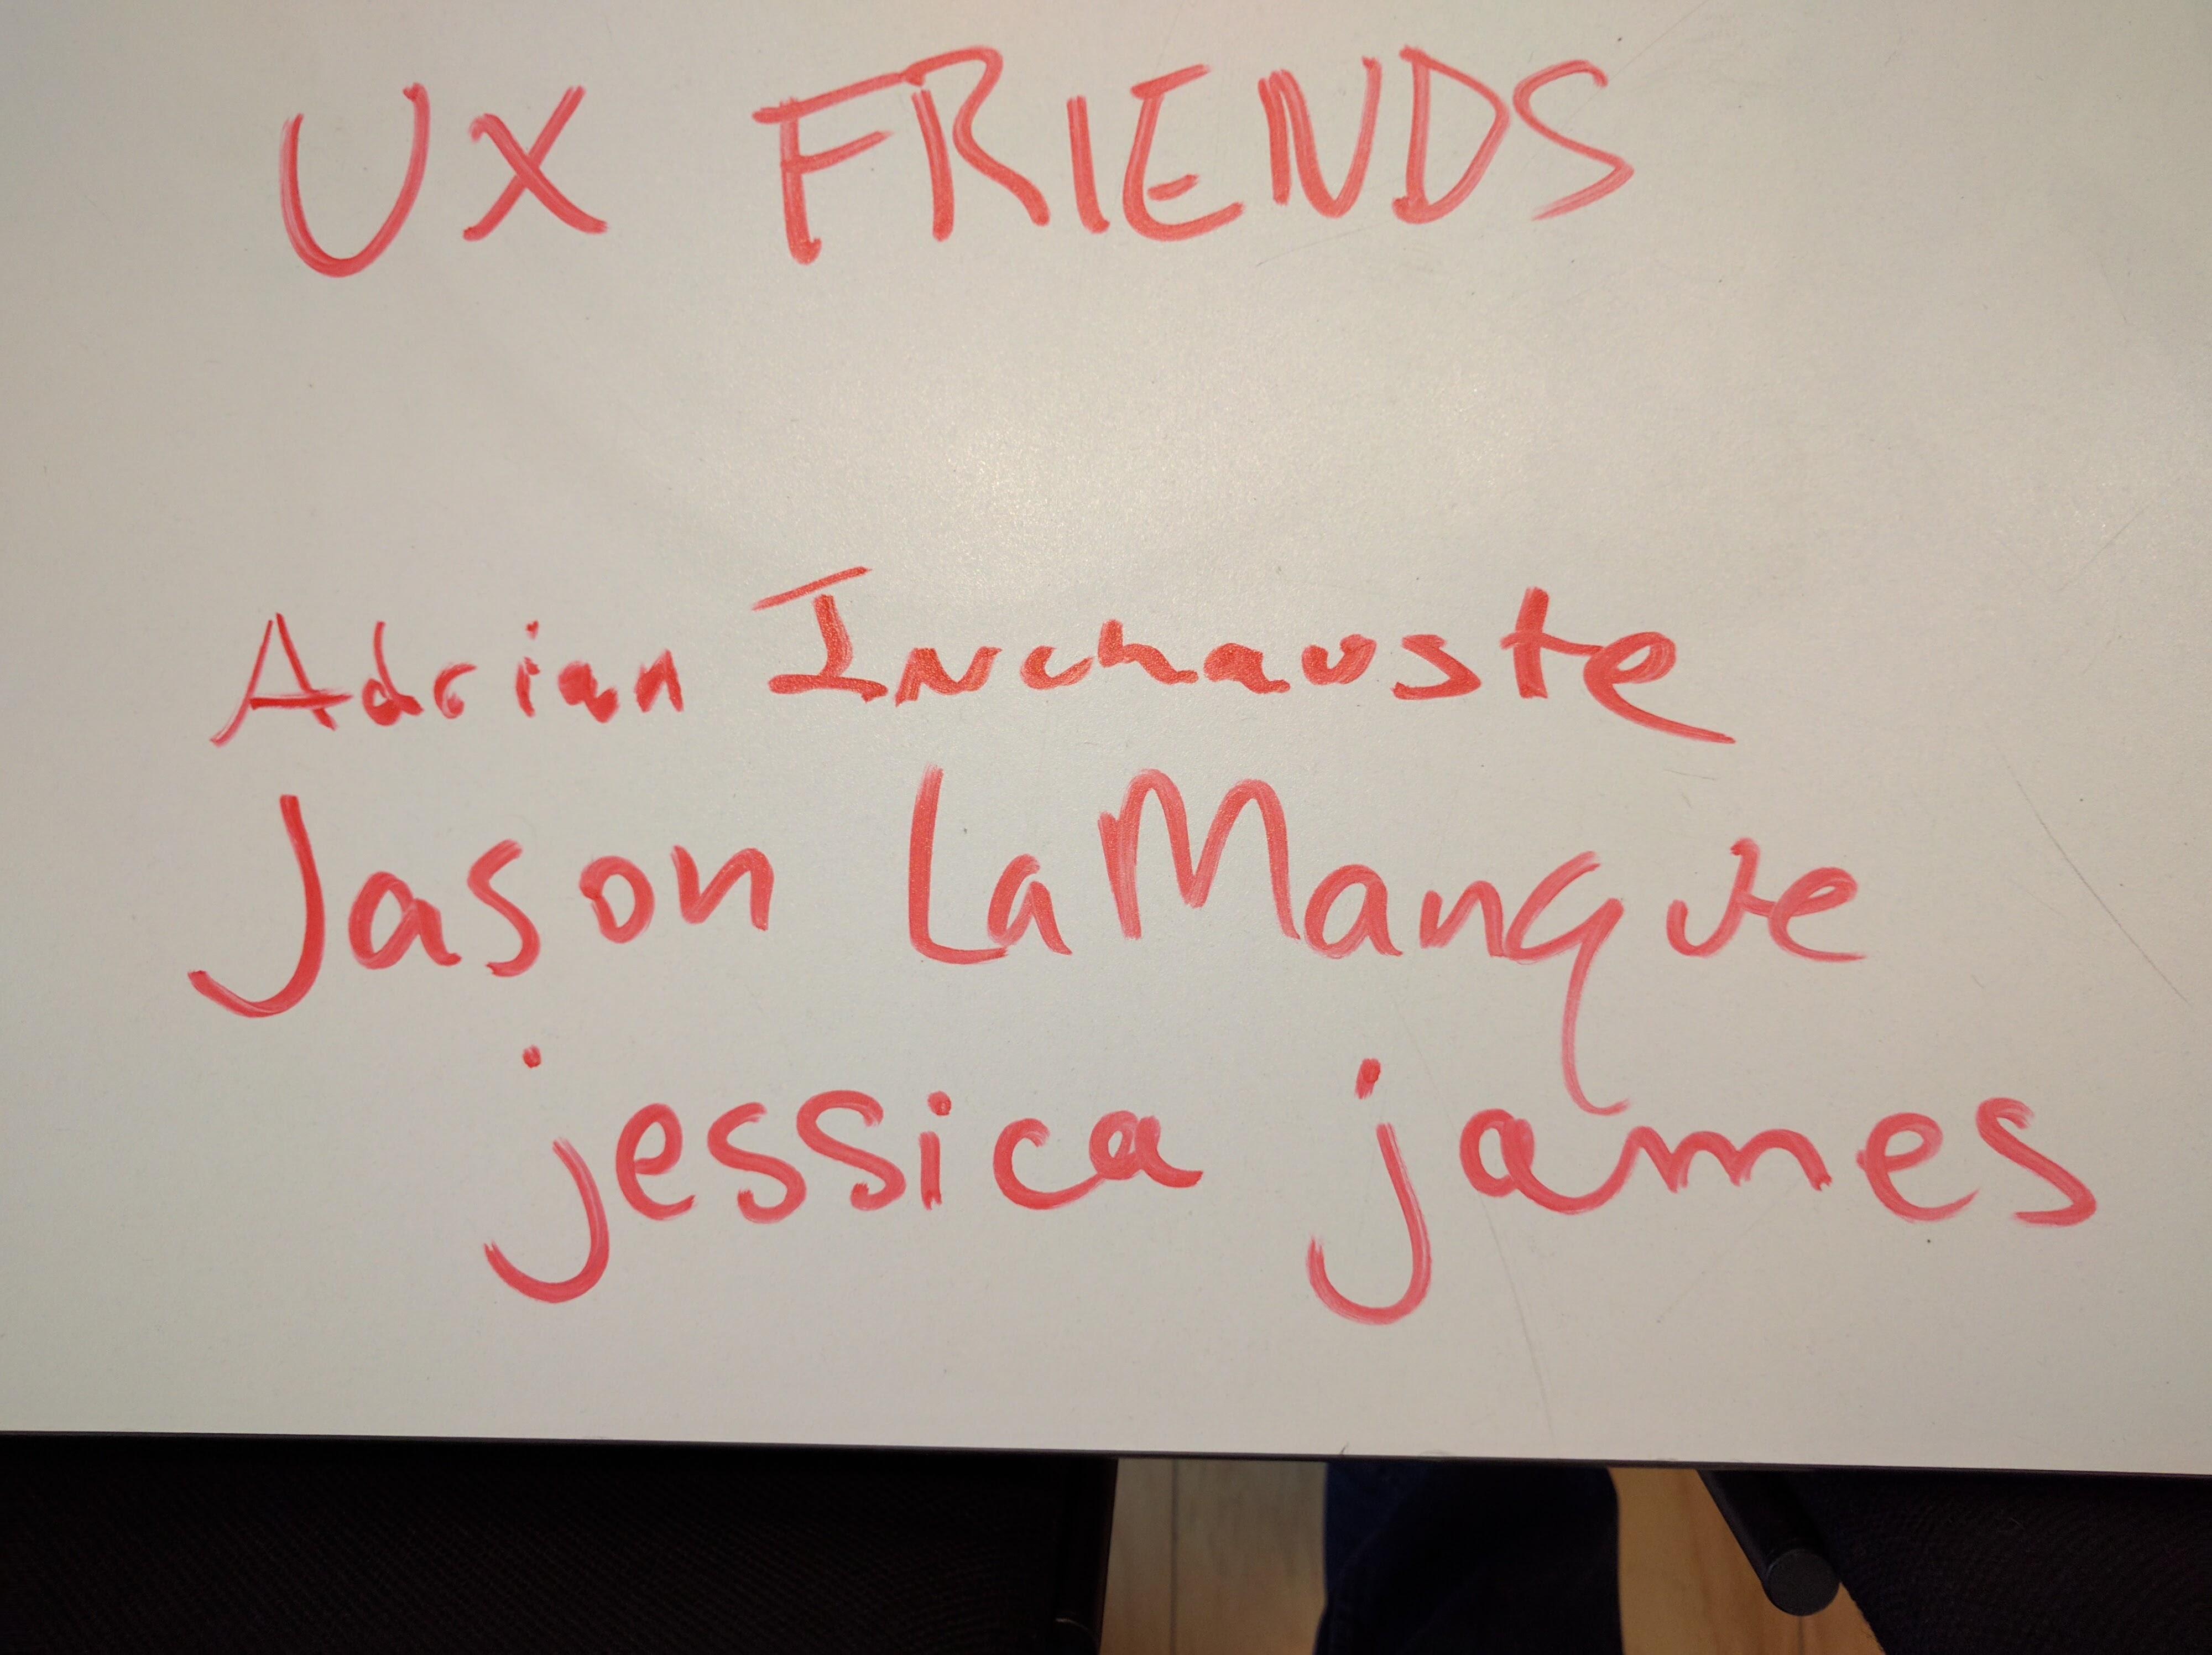 UX FRIENDS
Adrian Inchauste
Jason LaManque
jessica james